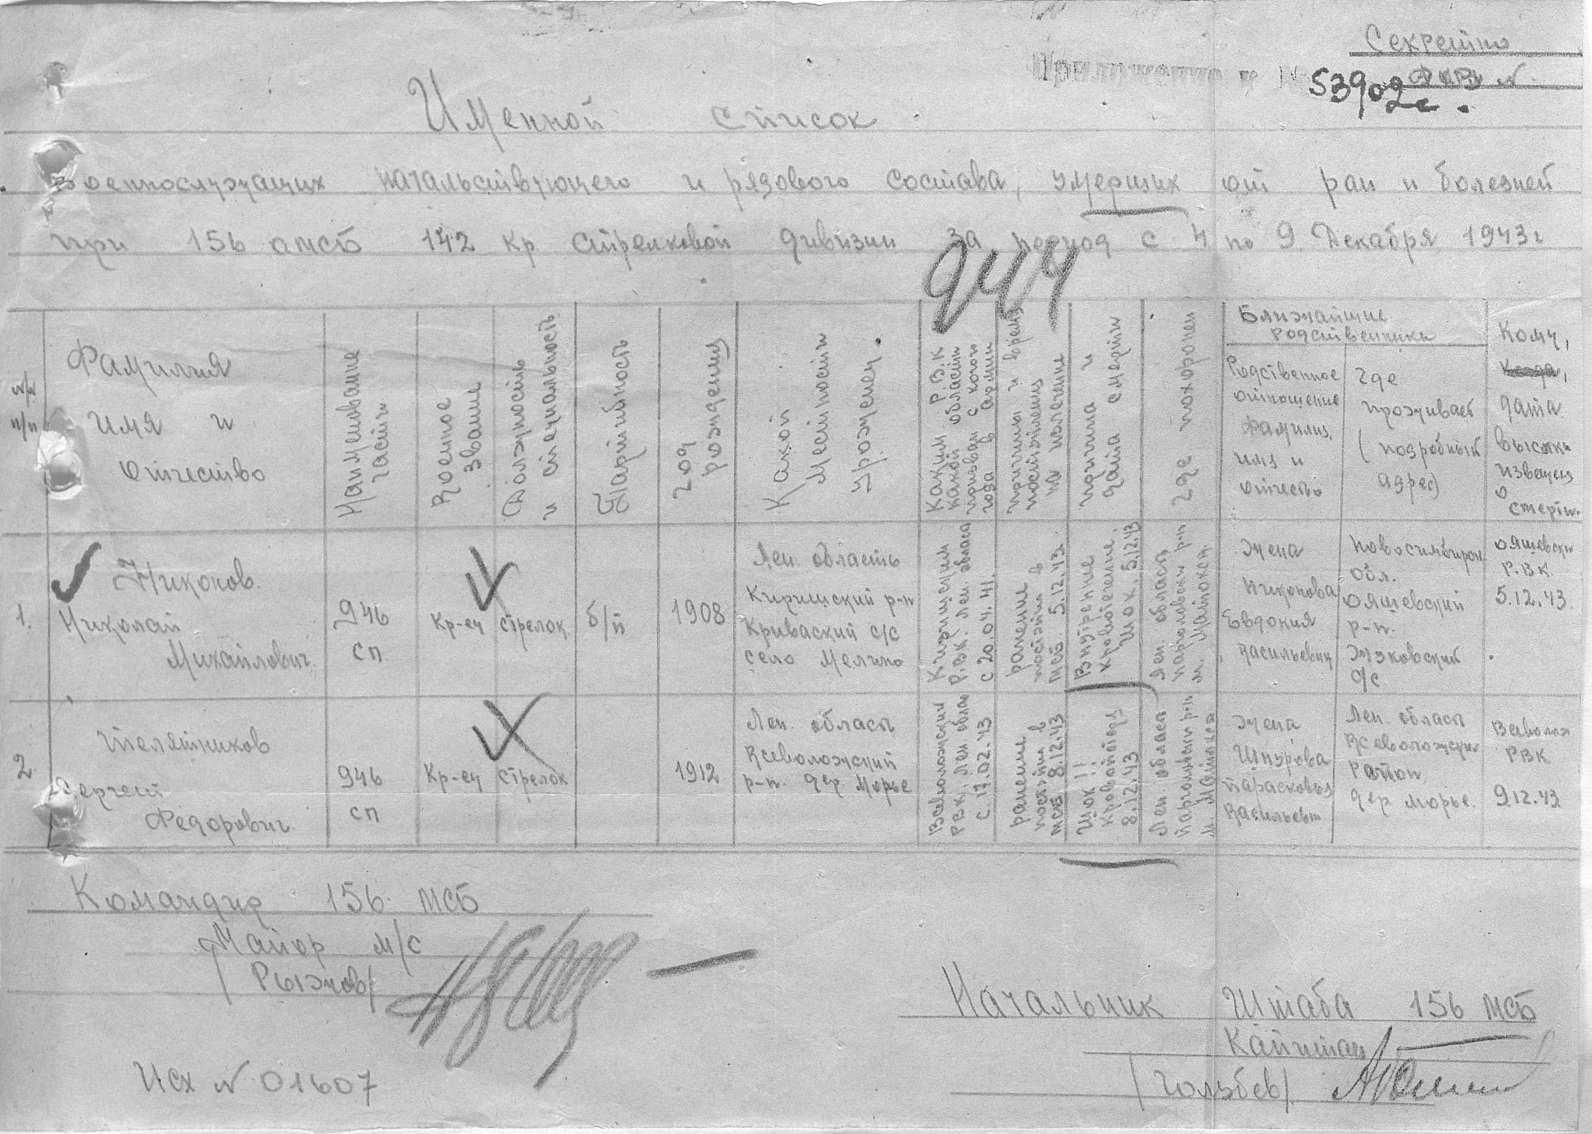 Секретно
Приложение к №
53902с.
Именной список
военнослужащих начальствующего и рядового состава, умерших от ран и болезней
при 156 омсб 142 кр стрелковой дивизии за период с 4 по 9 Декабря 1943г
244
№/№ п/п
Фамилия
имя и
отчество
Наименование
части
Военное
звание
Должность
и специальность
Партийность
год
рождения
Какой
местности
уроженец.
Каким Р.В.К
какой области
призван с какого
года в армии
причины и время
поступления
на излечение
причина и
дата смерти
где похоронен
Ближайшие
родственники
Родственное
отношение
фамилия,
имя и
отчество
где
проживает
(подробный
адрес)
Кому,
когда,
дата
высылки
извещения
о
смерти.
1.
Никонов.
Николай
Михайлович.
946
сп
Кр-ец
стрелок
б/п
1908
Лен. область
Киришский р-н
Криваский с/с
село Мелино
Киришским
Р.В.К. Лен. област
с 20.04.41.
ранение
поступил в
мсб 5.12.43.
Внутренне
кровотечение.
Шок. 5.12.43
Лен. област
парголовский р-н
м.
Жена
Никонова
Евдокия
Васильевна
Новосибирск
обл.
Ояшевский
р-н.
с/с
Ояшевски
Р.В.К.
5.12.43.
2
Телятников
Сергей
Федорович.
946
сп
Кр-ец
стрелок
1912
Лен. област
Всеволожский
р-н. дер Морье
Всеволожский
РВК, Лен облас
с. 17.02.43
ранение
поступил в
мсб 8.12.43
Шок!!
кровопотеря
8.12.43
Лен. област
парголовский р-н
м.
Жена
Шнурова
Парасковья
Васильевн
Лен. област
Всеволожски
район,
дер Морье.
Всеволож
РВК
9.12.43
Командир 156 МСБ
Майор м/с
/Рыжов/
Начальник Штаба 156 МСБ
Капитан
/Гольбев/
Исх № 01607